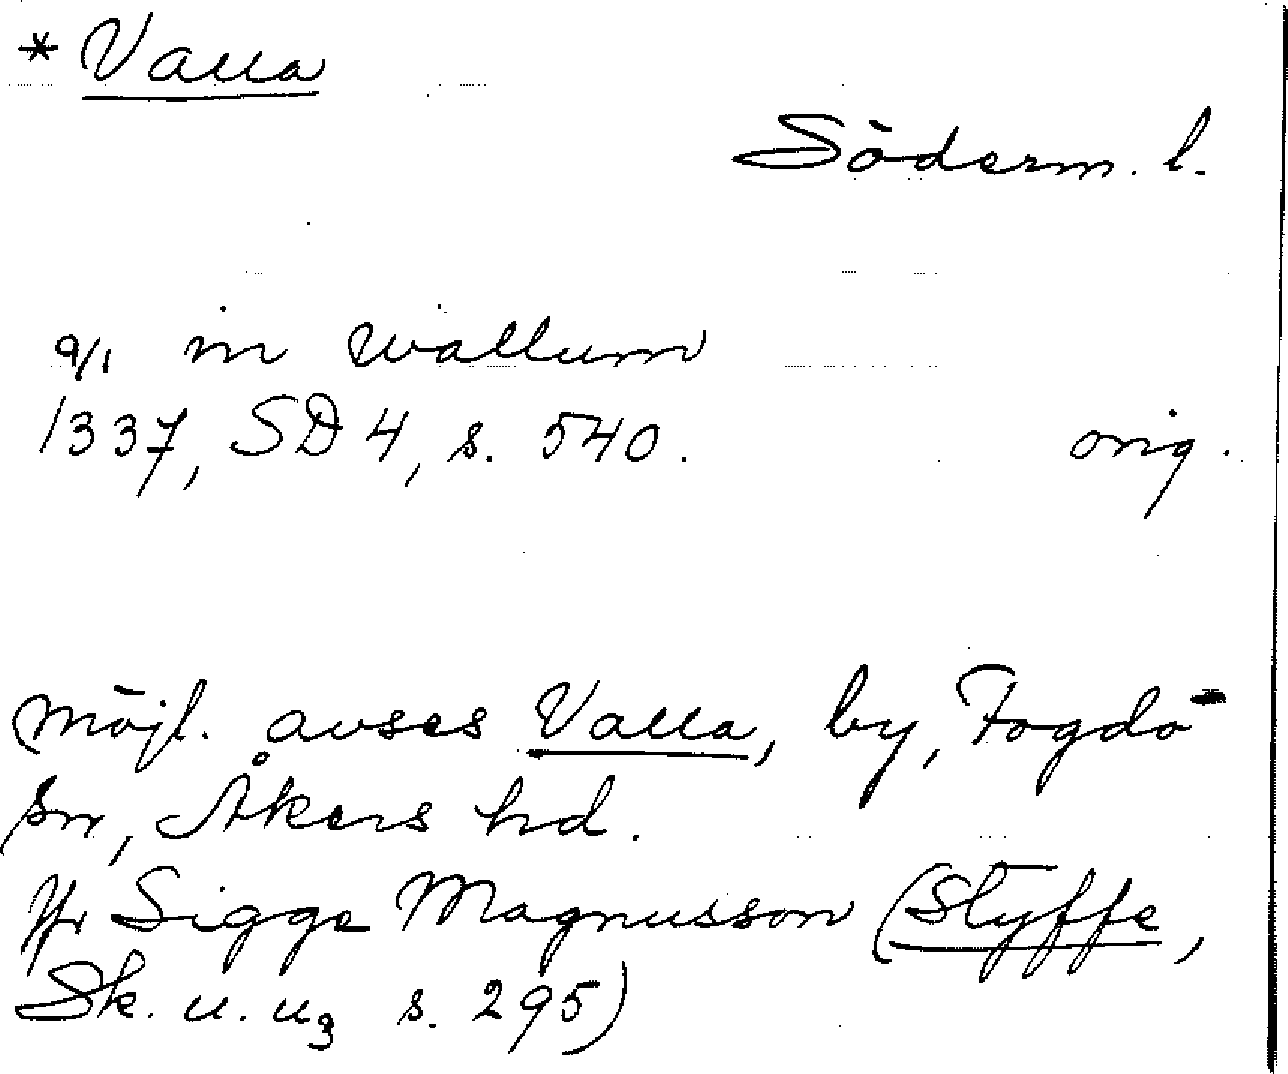 * Valla
Söderm. l.
9/1 in wallum
1337, SD 4, s. 540. orig.
Möjl. avses Valla, by, Fogdö
sn, Åkers hd.
Jfr Sigge Magnusson (Styffe,
Sk. u. u3 s. 295)